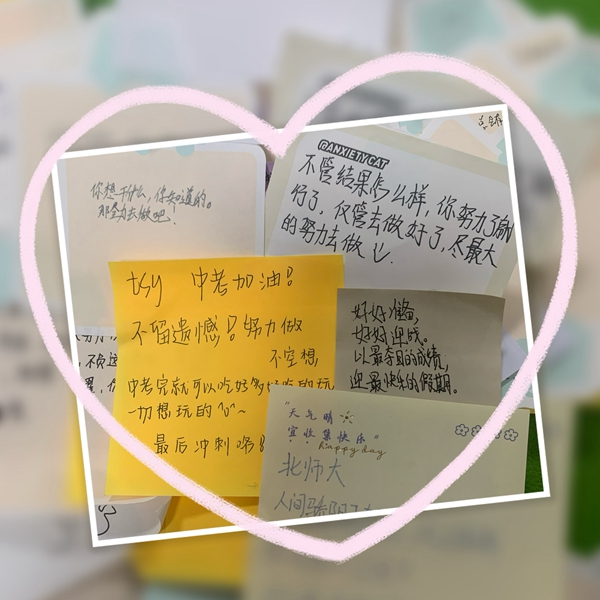 你想干什么，你知道的。
那全力去做吧.
@ANXIETYCAT
不管结果怎么样，你努力了就
行了，仅管去做好了，尽最大
的努力去做
tsy 中考加油！
不留遗憾！努力做
不空想，
中考完就可以吃好多好吃的玩
一切想玩的
最后冲刺咯
好好准备，
好好迎战。
以最夺目的成绩，
迎最快乐的假期。
"天气晴
宜收集快乐"
happy day
北师大
人间骄阳
不负这